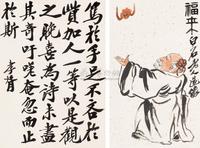 寫於手足不吝於
贊加人一等以是觀
之晚喜為詩未盡
其奇吁嗟奄忽而止
於斯 李
福來
白石老人